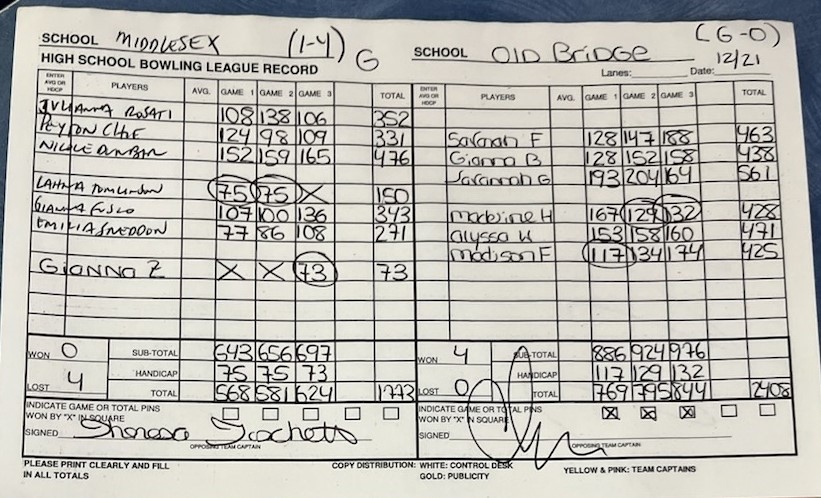 SCHOOL MIDDLESEX (1-4) G SCHOOL Old Bridge (6-0)
HIGH SCHOOL BOWLING LEAGUE RECORD Lanes: Date: 12/21
ENTER AVG OR HDCP PLAYERS AVG. GAME 1 GAME 2 GAME 3 TOTAL ENTER AVG OR HDCP PLAYERS AVG. GAME 1 GAME 2 GAME 3 TOTAL
JULIANNA ROSATI 108 138 106 352
PEYTON 124 98 109 331 Savanah F 128 147 188 463
NICOLE DUNBAR 152 159 165 476 Gianna B 128 152 158 438
Savannah G 193 204 164 561
TOMLINSON 75 75 X 150
GIANNA FUSCO 107 100 136 343 H 167 129 132 428
EMILIA SNEDDON 77 86 108 271 alyssa K 153 158 160 471
madison F 117 134 174 425
Gianna Z X X 73 73
WON 0 SUB-TOTAL 643 656 697 WON 4 SUB-TOTAL 886 924 976
HANDICAP 75 75 73 HANDICAP 117 129 132
LOST 4 TOTAL 568 581 624 1773 LOST 0 TOTAL 769 795 844 2408
INDICATE GAME OR TOTAL PINS WON BY "X" IN SQUARE INDICATE GAME OR TOTAL PINS WON BY "X" IN SQUARE X X X
SIGNED Theresa SIGNED
OPPOSING TEAM CAPTAIN OPPOSING TEAM CAPTAIN
PLEASE PRINT CLEARLY AND FILL IN ALL TOTALS COPY DISTRIBUTION: WHITE: CONTROL DESK GOLD: PUBLICITY YELLOW & PINK: TEAM CAPTAINS